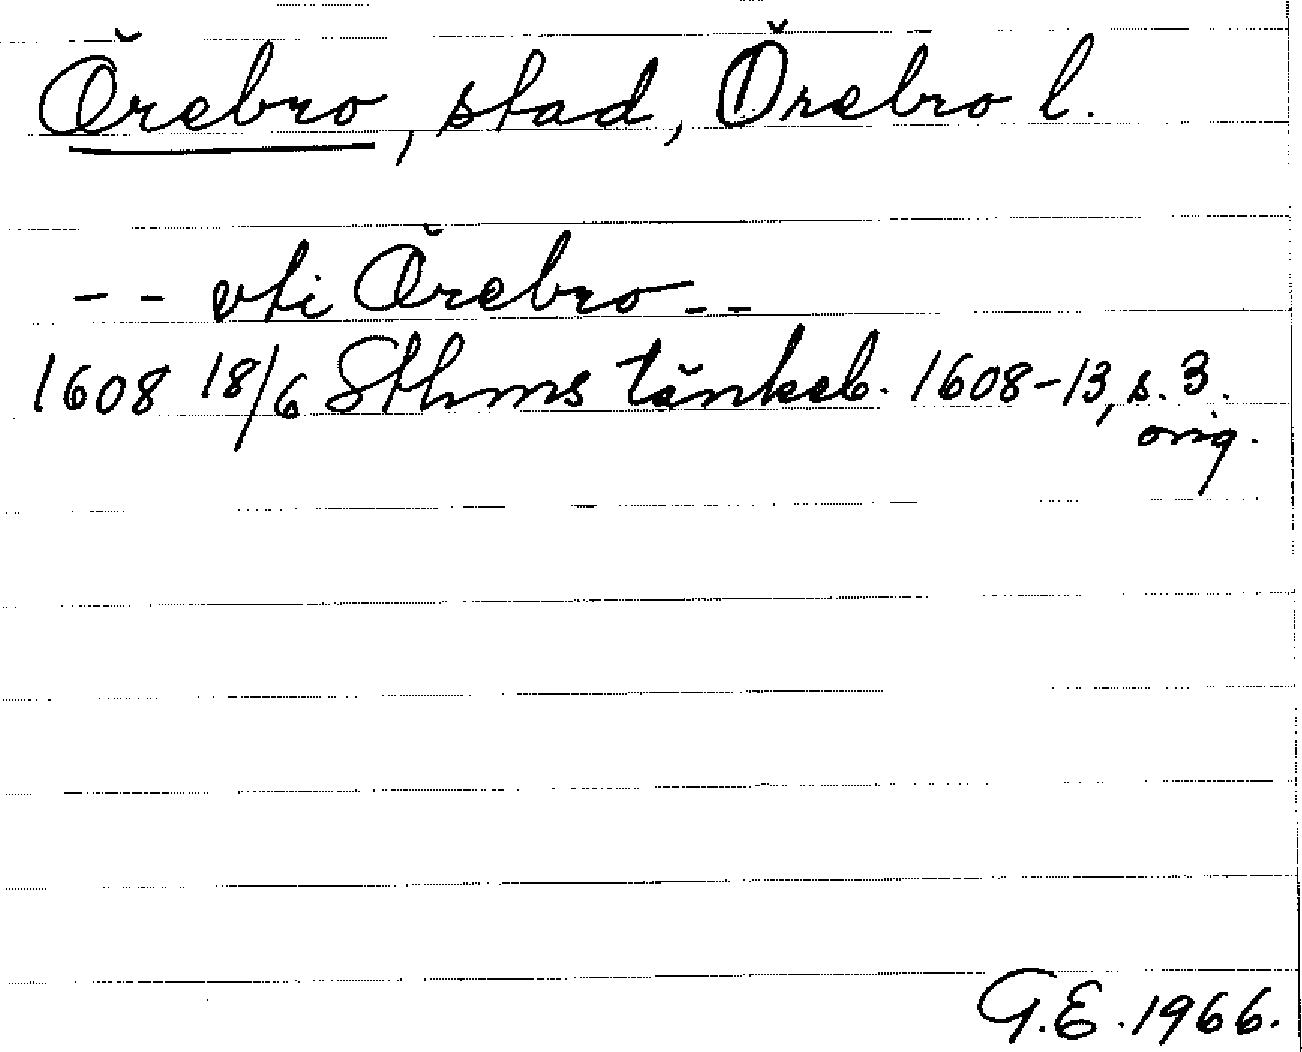 Örebro, stad, Örebro l.
-- vti Örebro --
1608 18/6 Sthms tänkeb. 1608-13, s. 3.
orig.
G.E. 1966.